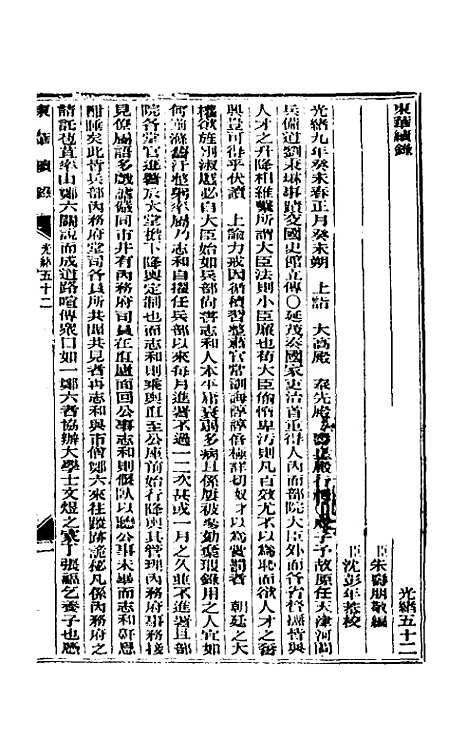 東華續錄
光緒五十二
臣朱壽朋敬編
臣沈彭年恭校
光緒九年癸未春正月癸未朔 上詣 大高殿 奉先殿 壽皇殿行禮 子故原任天津河間
兵備道劉秉琳事蹟交國史館立傳○延茂奏國家吏治首重得人內而部院大臣外而各省督撫皆與
人才之升降相維繫所謂大臣法則小臣廉也苟大臣偷惰卑污則凡百效尤不以為恥而欲人才之奮
興豈可得乎伏讀 上諭力戒因循積習整肅官常訓誨諄諄倍極詳切竊以為賞罰者 朝廷之大
權欲旌別淑慝必自大臣始如兵部尚書志和人本平庸衰朽多病且係屢被參劾棄瑕錄用之人宜如
何前滌舊汙整躬率屬乃志和自擢任兵部以來每月進署不過一二次甚或一月之久並不進署且部
院各堂官進署於大堂檐下降輿定制也而志和則乘輿直至公座前始行降輿其管理內務府事務接
見僚屬語多戲謔儼同市井有內務府司員在值廬面回公事志和則偃臥以聽公事未畢而志和鼾息
酣睡矣此情兵部內務府堂司各員所共聞共見者再志和與市儈鄭六來往蹤跡詭秘凡係內務府之
請託苞苴率由鄭六關說而成道路喧傳眾口如一鄭六者協辦大學士文煜之家丁張福乞養子也應
東華續錄 光緒五十二 一